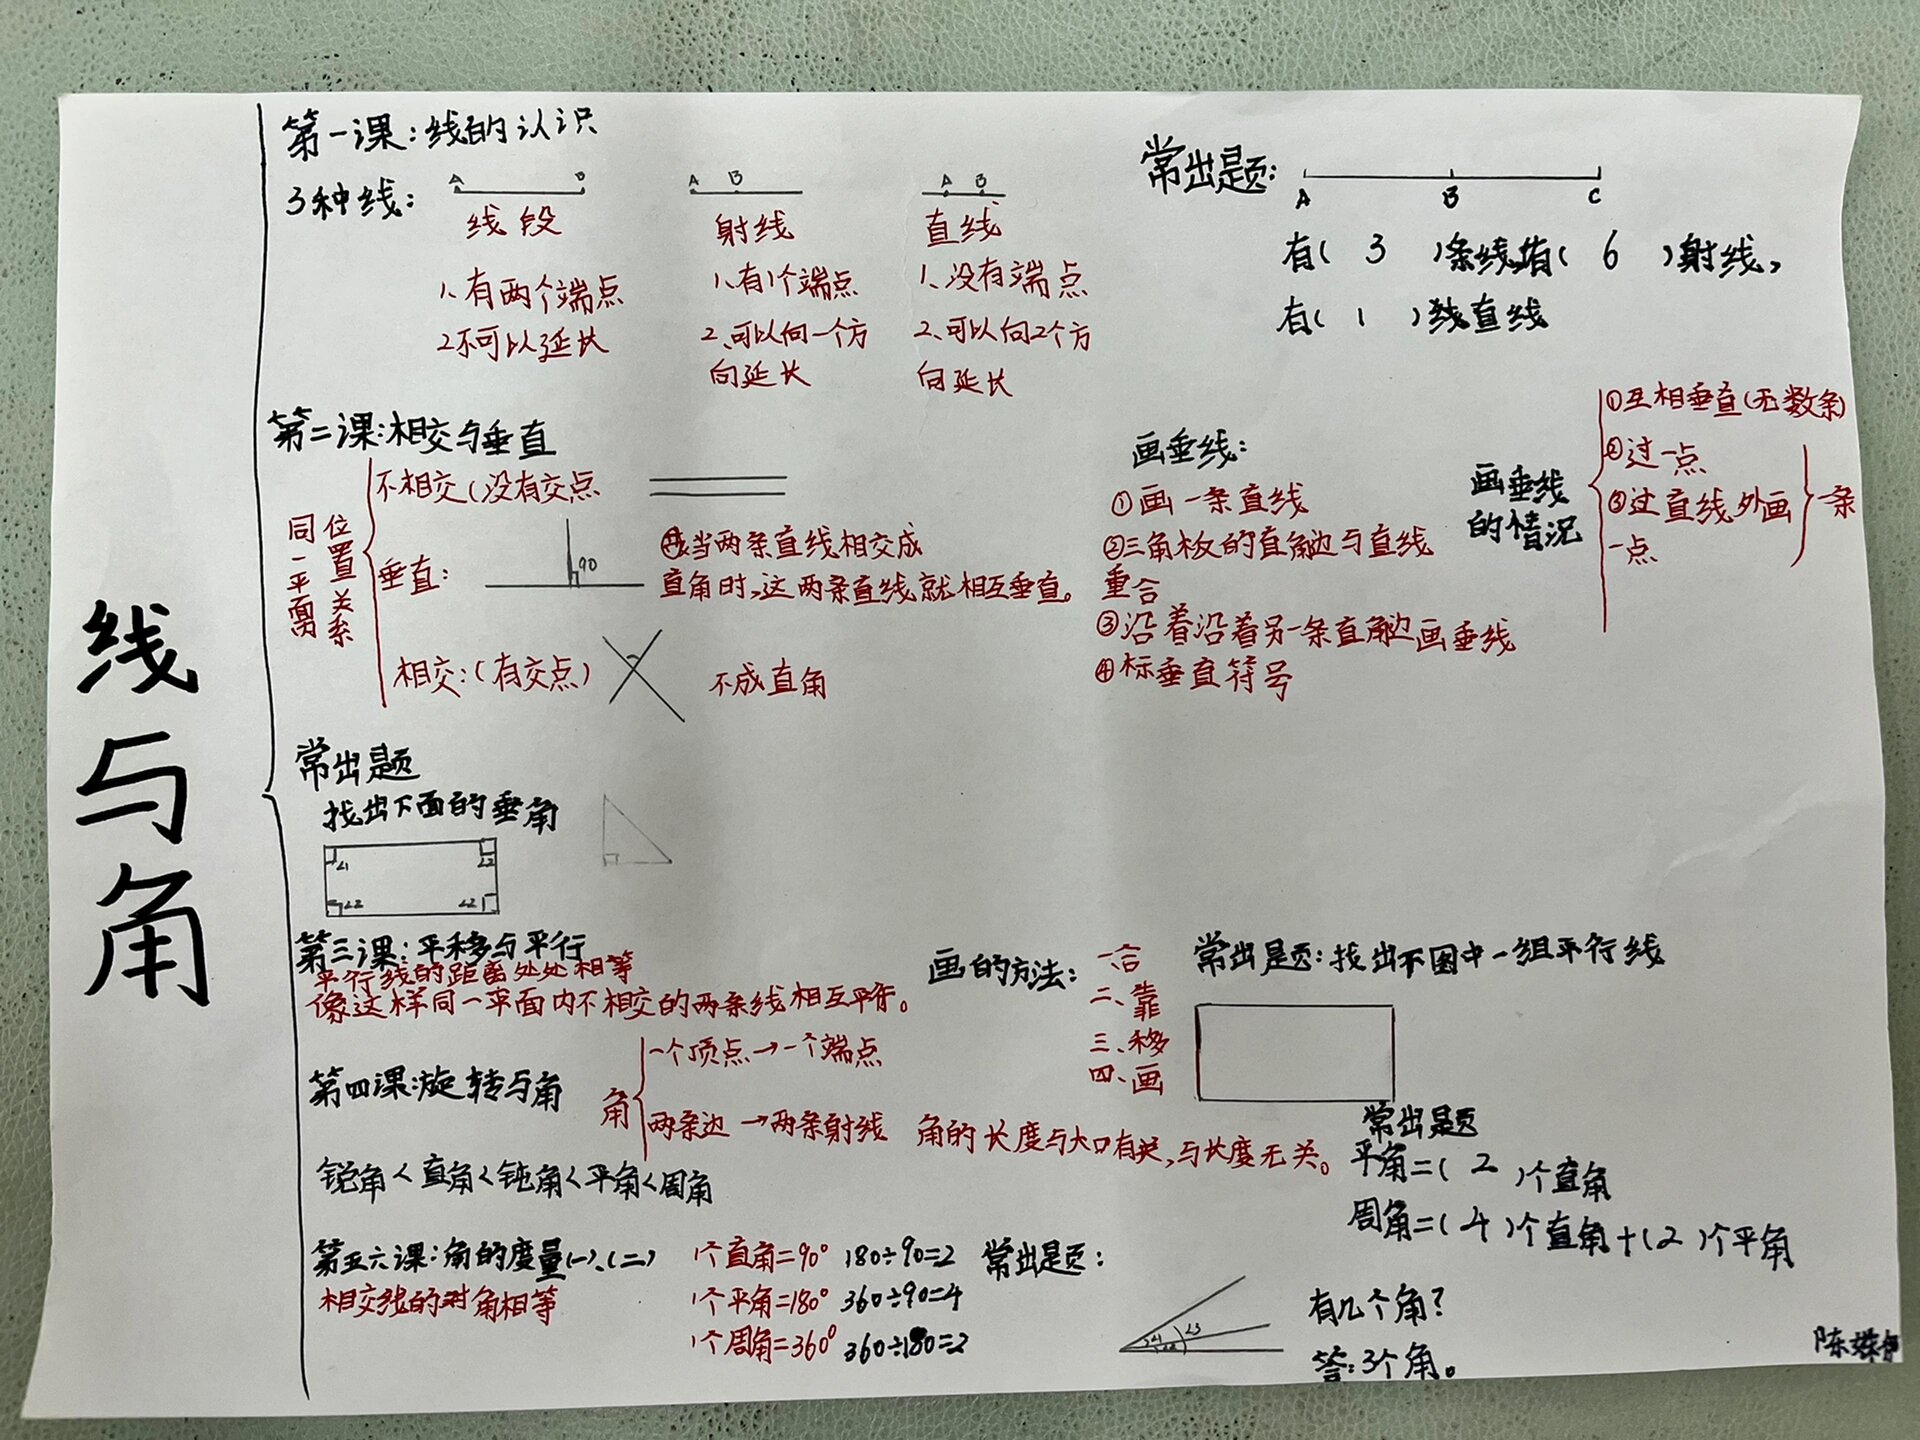 线与角
第一课：线的认识
3种线：
A B
线段
1、有两个端点
2不可以延长
A B
射线
1、有1个端点
2、可以向一个方
向延长
A B
直线
1、没有端点
2、可以向2个方
向延长
常出题：
A B C
有( 3 )条线段有( 6 )射线，
有( 1 )线直线
第二课：相交与垂直
同一平面内
位置关系
不相交(没有交点
垂直：
90
当两条直线相交成
直角时，这两条直线就相互垂直。
相交：(有交点)
不成直角
画垂线：
①画一条直线
②三角板的直角边与直线
重合
③沿着沿着另一条直角边画垂线
④标垂直符号
画垂线
的情况
①互相垂直(无数条)
②过一点
③过直线外画
一点
一条
常出题
找出下面的垂角
∠1 ∠2
∠2 ∠2
第三课：平移与平行
平行线的距离处处相等
像这样同一平面内不相交的两条线相互平行。
画的方法：
一合
二、靠
三、移
四、画
常出题：找出下图中一组平行线
第四课：旋转与角
角
一个顶点→一个端点
两条边→两条射线
角的长度与大口有关，与长度无关。
锐角<直角<钝角<平角<周角
常出题
平角=( 2 )个直角
周角=( 4 )个直角+(2 )个平角
第五六课：角的度量(一)、(二)
相交线的对角相等
1个直角=90° 180÷90=2
1个平角=180° 360÷90=4
1个周角=360° 360÷180=2
常出题：
∠1 ∠2 ∠3
有几个角？
答：3个角。